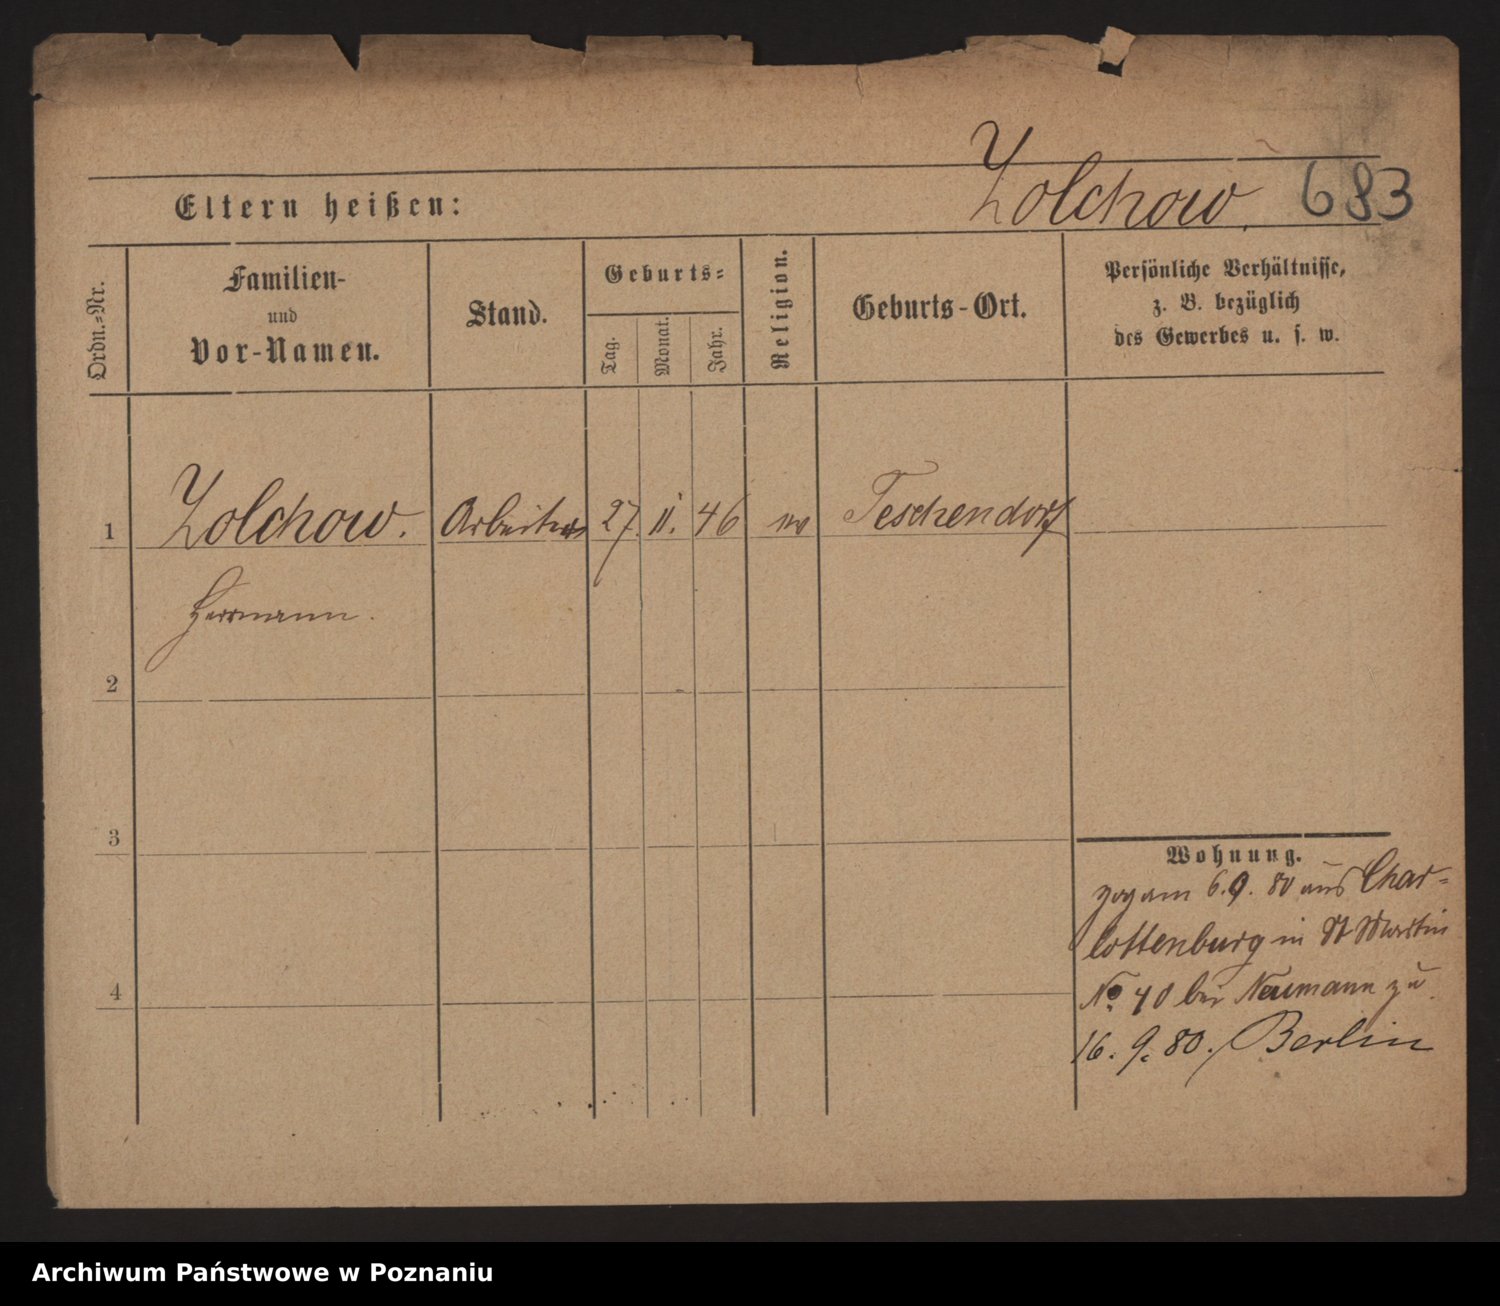 Zolchow.
683
Eltern heißen:
Ordn.-Nr.
Familien-
und
Vor-Namen.
Stand.
Geburts-
Tag.
Monat.
Jahr.
Religion.
Geburts-Ort.
Persönliche Verhältnisse,
z. B. bezüglich
des Gewerbes u. s. w.
1
Zolchow.
Herrmann.
Arbeiter
27.
11.
46
ev
Teschendorf
2
3
4
Wohnung.
zog am 6.9.80 aus Char-
lottenburg in St Martin
No 40 bei Neumann zu
16. 9. 80. Berlin
Archiwum Państwowe w Poznaniu